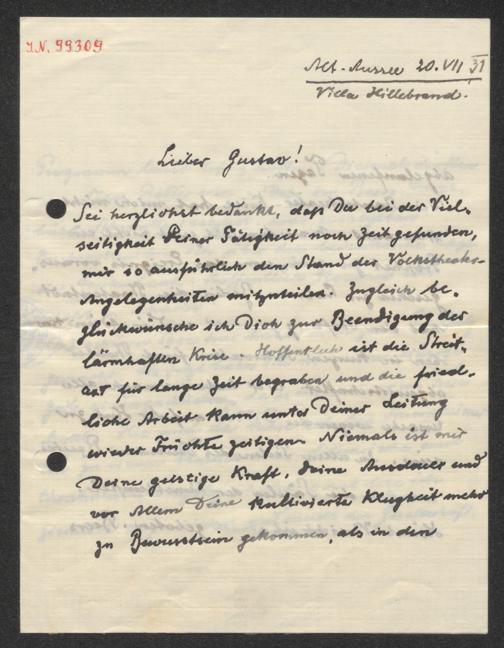 I.N. 99309
Alt-Aussee 20.VII 31
Villa Hillebrand.
Lieber Gustav!
Sei herzlichst bedankt, daß Du bei der Viel-
seitigkeit Deiner Tätigkeit noch Zeit gefunden,
mir so ausführlich den Stand der Volkstheater-
Angelegenheiten mitzuteilen. Zugleich be-
glückwünsche ich Dich zur Beendigung der
lärmhaften Krise. Hoffentlich ist die Streit-
axt für lange Zeit begraben und die fried-
liche Arbeit kann unter Deiner Leitung
wieder Früchte zeitigen. Niemals ist mir
Deine geistige Kraft, Deine Ausdauer und
vor Allem Deine kultivierte Klugheit mehr
zu Bewusstsein gekommen, als in den